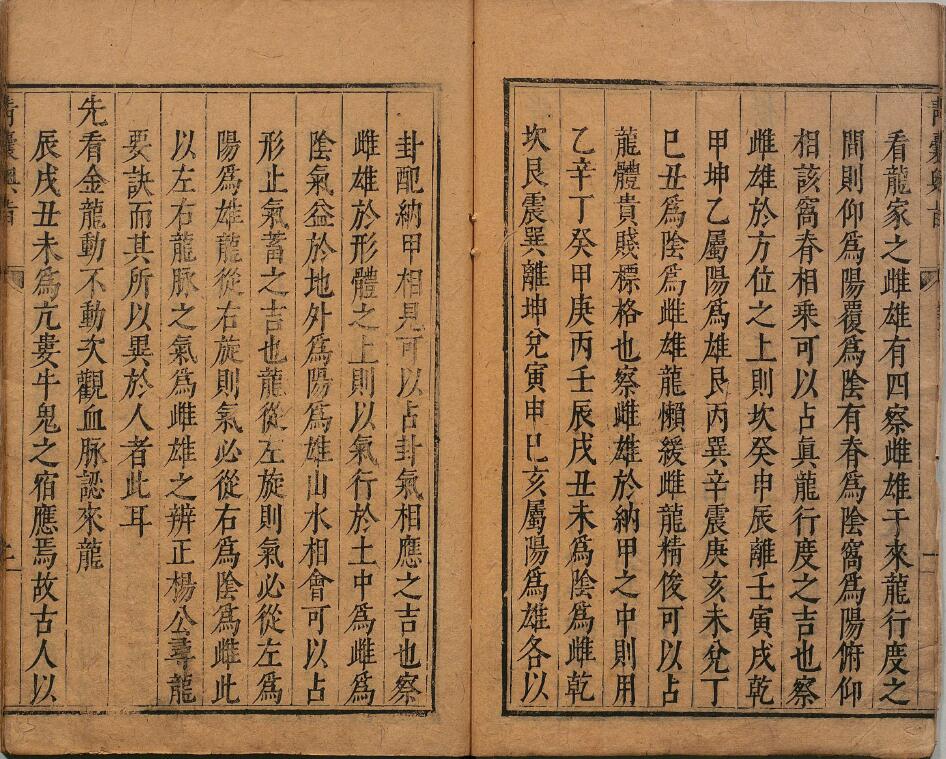 青囊奧旨
看龍家之雌雄有四察雌雄于來龍行度之
間則仰爲陽覆爲陰有脊爲陰窩爲陽俯仰
相該窩脊相乘可以占眞龍行度之吉也察
雌雄於方位之上則坎癸申辰離壬寅戌乾
甲坤乙屬陽爲雄艮丙巽辛震庚亥未兌丁
巳丑爲陰爲雌雄龍懶緩雌龍精俊可以占
龍體貴賤標格也察雌雄於納甲之中則用
乙辛丁癸甲庚丙壬辰戌丑未爲陰爲雌乾
坎艮震巽離坤兌寅申巳亥屬陽爲雄各以
卦配納甲相見可以占卦氣相應之吉也察
雌雄於形體之上則以氣行於土中爲雌爲
陰氣益於地外爲陽爲雄山水相會可以占
形止氣蓄之吉也龍從左旋則氣必從左爲
陽爲雄龍從右旋則氣必從右爲陰爲雌此
以左右龍脉之氣爲雌雄之辨正楊公尋龍
要訣而其所以異於人者此耳
先看金龍動不動次觀血脉認來龍
辰戌丑未爲亢婁牛鬼之宿應焉故古人以
青囊奧旨